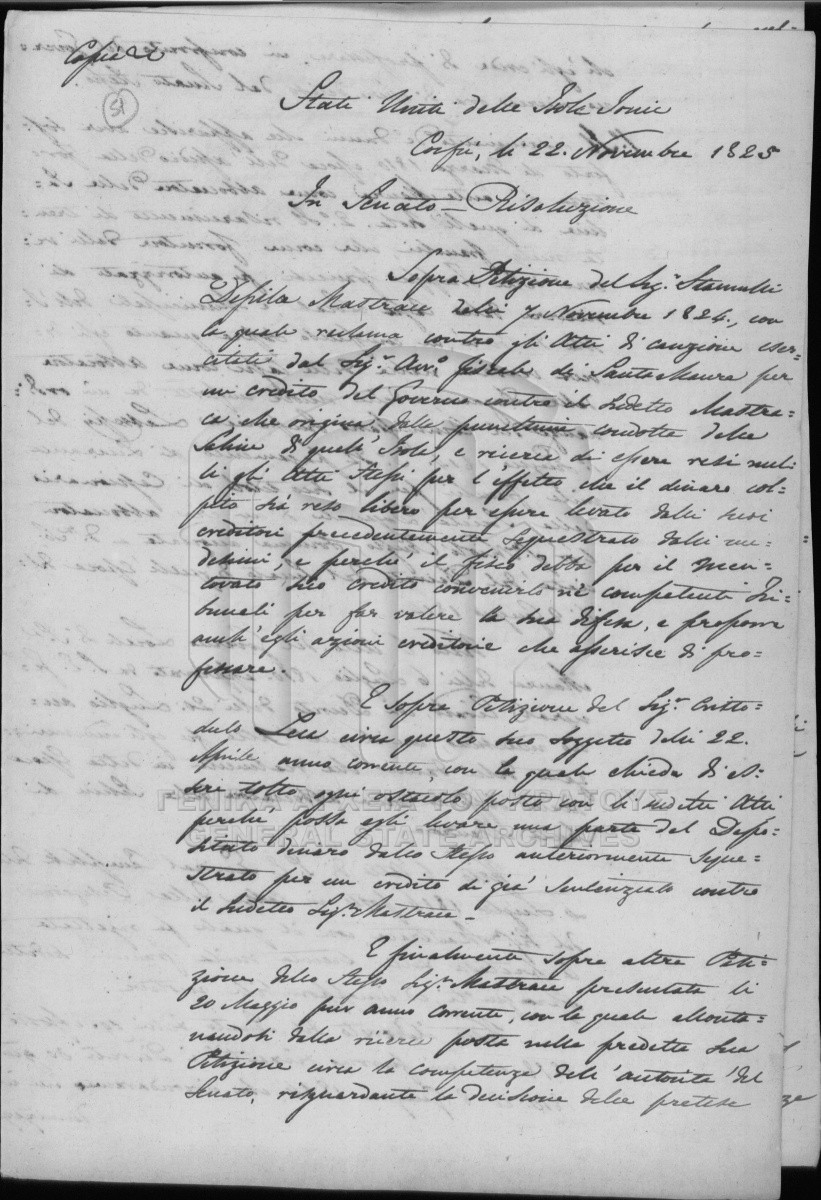 Copia
51
Stati Uniti delle Isole Jonie
Corfù, li 22. Novembre 1825
In Senato – Risoluzione
Sopra Petizione del Sig.r Stamulli
Desilla Mastracà delli 7 Novembre 1824., con
la quale reclama contro gli Atti di cauzione eser-
citati dal Sig.r Avv.o fiscale di Santa Maura per
un credito del Governo contro il sudetto Mastra-
ca che origina dalla condotta delle
Saline di quell' Isola, e ricerca di essere resi nul-
li gli Atti stessi per l'effetto che il dinaro col-
pito sia reso libero per essere levato dalli suoi
creditori precedentemente sequestrato dalli me-
desimi, e perchè il fisco debba per il men-
tovato suo credito convenirlo ne' competenti Tri-
bunali per far valere la sua difesa, e proporre
anch' egli azioni creditorie che asserisce di pro-
fessare.
E sopra Petizione del Sig.r Critto-
dulo circa questo suo soggetto delli 22.
Aprile anno corrente, con la quale chiede di es-
sere tolto ogni ostacolo posto con li sudetti Atti
perchè possa egli levare una parte del Depo-
sitato dinaro dallo stesso anteriormente seque-
strato per un credito di già sentenziato contro
il sudetto Sig.r Mastraca –
E finalmente sopra altra Peti-
zione dello stesso Sig.r Mastraca presentata li
20 Maggio pur anno corrente, con la quale allonta-
nandosi dalla ricerca posta nella predetta sua
Petizione circa la competenza dell' autorità del
Senato, risguardante la decisione delle pretese
ΓΕΝΙΚΑ ΑΡΧΕΙΑ ΤΟΥ ΚΡΑΤΟΥΣ
GENERAL STATE ARCHIVES